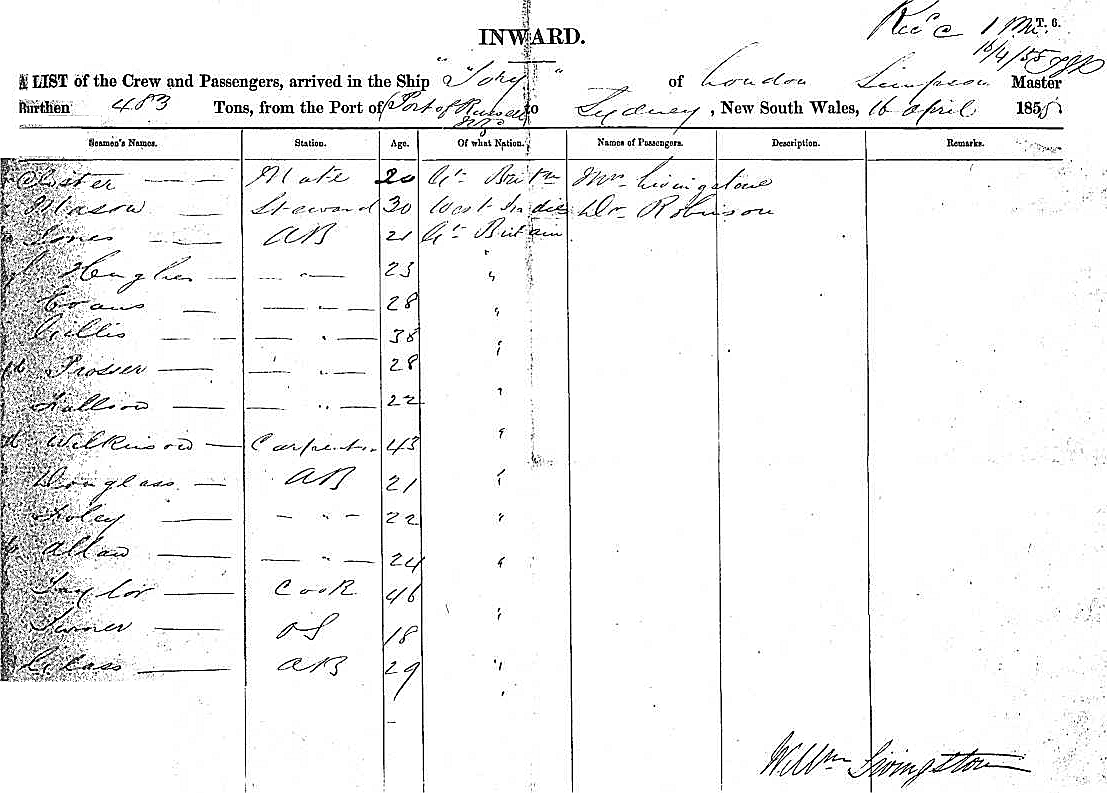 Rec'd 1 PM. T. 6.
16/4/55
INWARD.
A LIST of the Crew and Passengers, arrived in the Ship "Tory" of London Simpson Master
Burthen 483 Tons, from the Port of Port of Russell to Sydney, New South Wales, 16 April 1855
Seamen's Names. Station. Age. Of what Nation. Names of Passengers. Description. Remarks.
Mate 20 Gt Britn Mr Livingstone
Mason — Steward 30 West Indies Dr Robinson
Jones — AB 21 Gt Britain
Hughes — — " — 23 "
Evans — — " — 28 "
Gillis — — " — 38 "
Prosser — — " — 28 "
— — " — 22 "
Wilkinson — Carpenter 43 "
Douglass — AB 21 "
Foley — — " — 22 "
Allan — — " — 24 "
Taylor — Cook 46 "
Turner — OS 18 "
Glass — AB 29 "
"
Willm Livingston